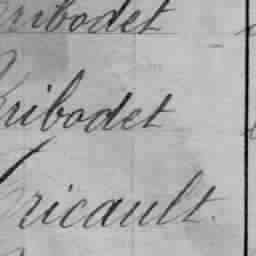 Bribodet
Bribodet
Bricault.